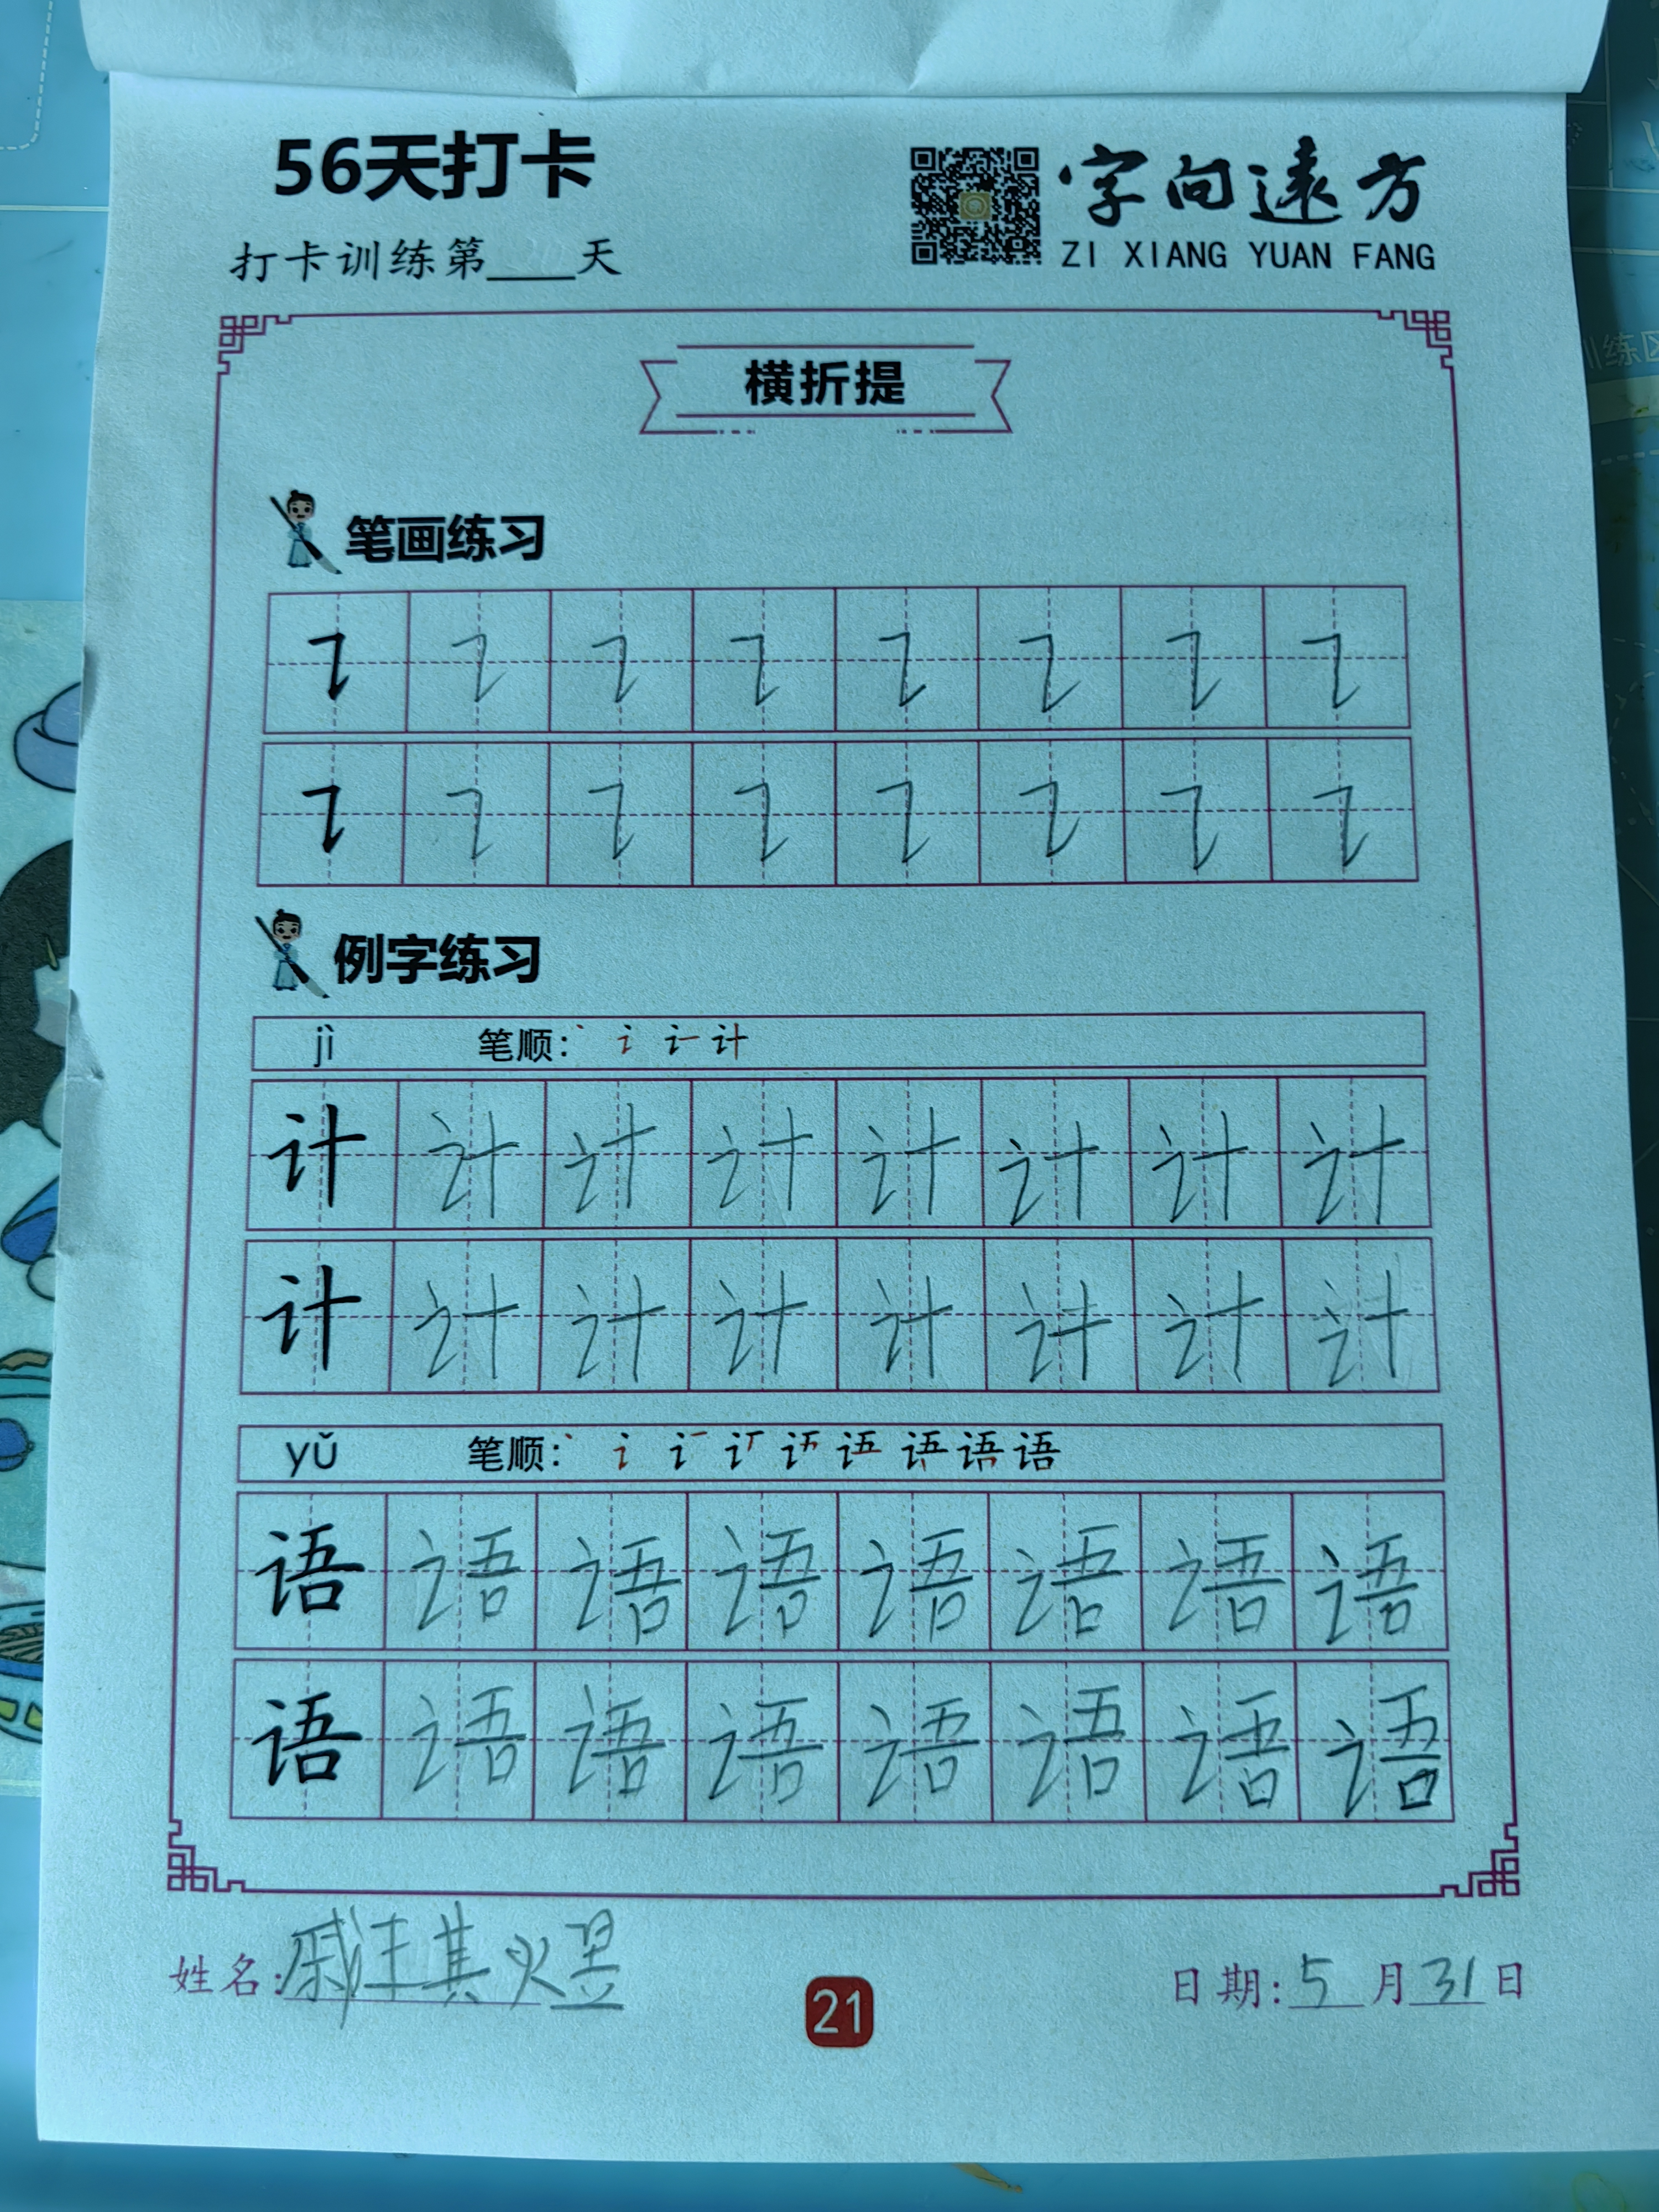 56天打卡
字向遠方
打卡训练第____天
ZI XIANG YUAN FANG
横折提
笔画练习
例字练习
jì 笔顺: 计
计 计 计 计 计 计 计 计
计 计 计 计 计 计 计 计
yǔ 笔顺: 语
语 语 语 语 语 语 语 语
语 语 语 语 语 语 语 语
姓名:
21
日期: 5 月 31 日